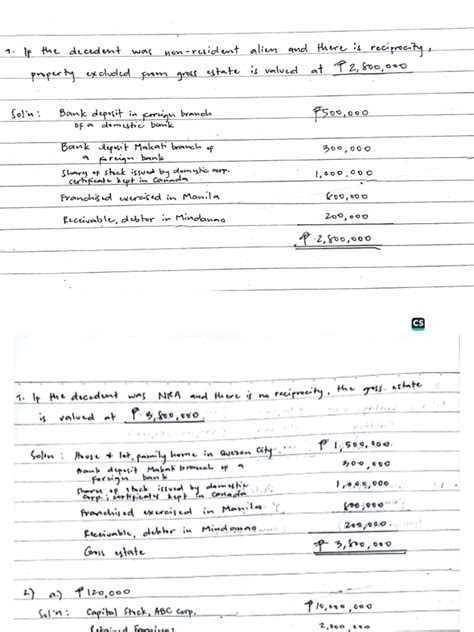 1. If the decedent was non-resident alien and there is reciprocity,
property excluded from gross estate is valued at ₱2,800,000
Sol'n: Bank deposit in foreign branch of a domestic bank ₱500,000
Bank deposit Makati branch of a foreign bank 300,000
Shares of stock issued by domestic corp. certificate kept in Canada 1,000,000
Franchised exercised in Manila 800,000
Receivable, debtor in Mindanao 200,000
₱2,800,000
CS
1. If the decedent was NRA and there is no reciprocity, the gross estate
is valued at ₱3,800,000
Soln: House & lot, family home in Quezon City ₱1,500,000
Bank deposit Makati branch of a foreign bank 300,000
Shares of stock issued by domestic corp; certificates kept in Canada 1,000,000
Franchised exercised in Manila 800,000
Receivable, debtor in Mindanao 200,000
Gross estate ₱3,800,000
2) a.) ₱120,000
Sol'n: Capital Stock, ABC Corp. ₱10,000,000
Retained Earnings 2,000,000